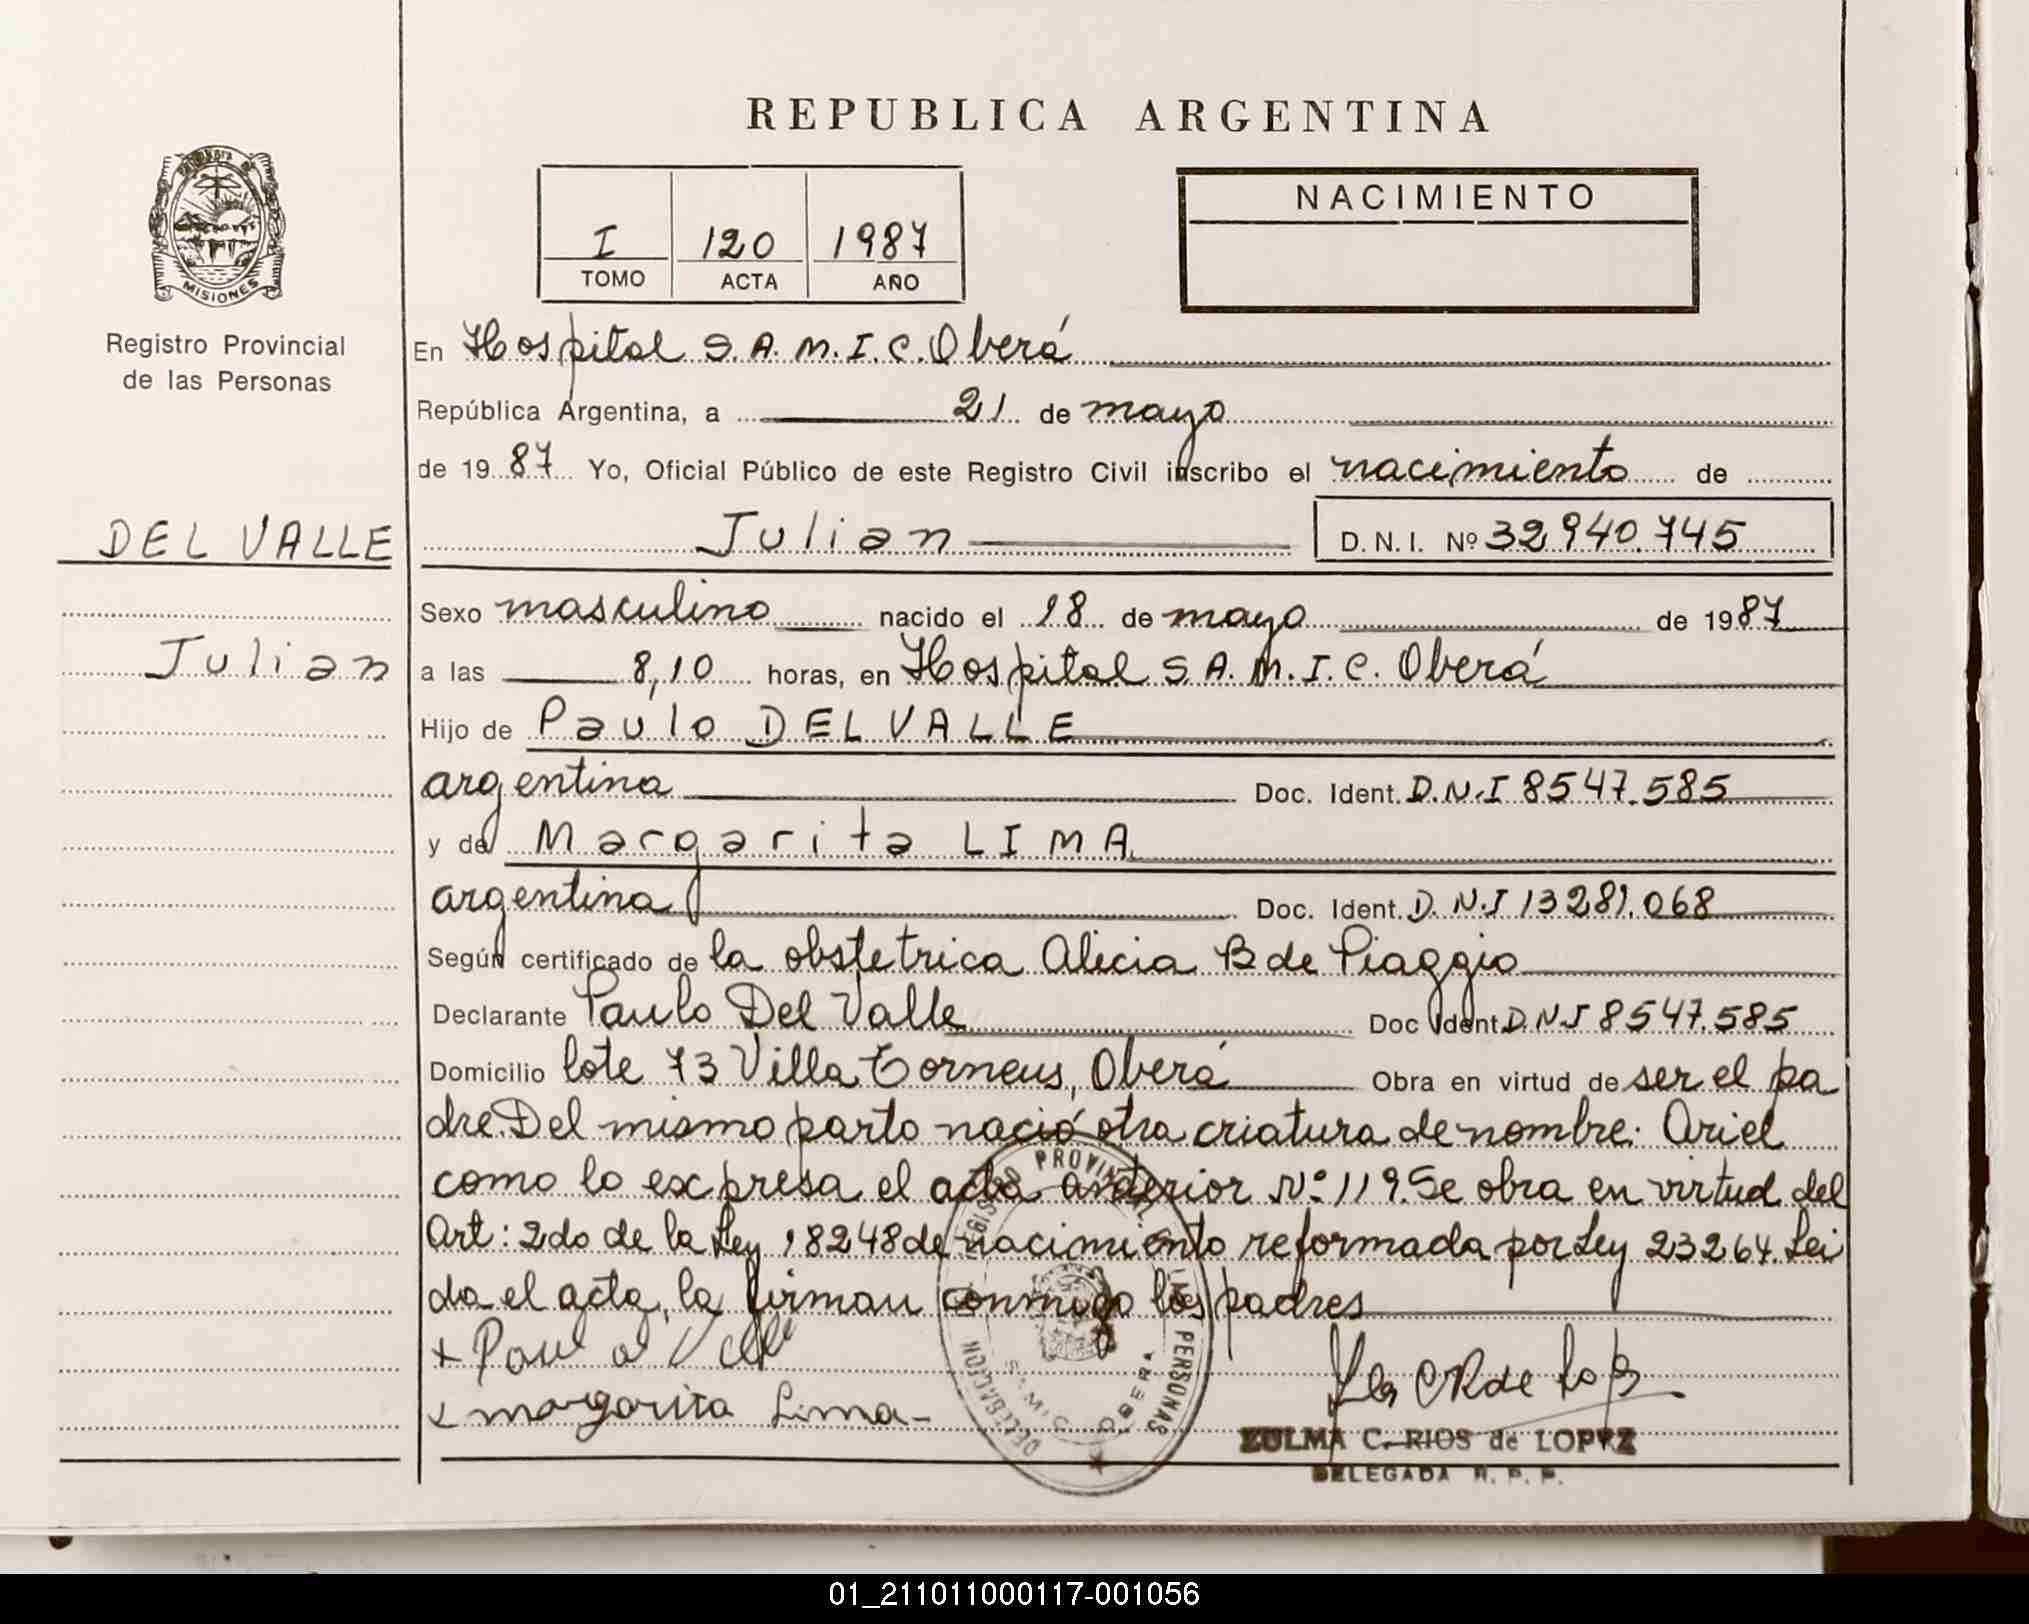 REPUBLICA ARGENTINA
NACIMIENTO
I 120 1987
TOMO ACTA AÑO
MISIONES
Registro Provincial
de las Personas
En Hospital S.A.M.I.C. Oberá
República Argentina, a 21 de mayo
de 1987 Yo, Oficial Público de este Registro Civil inscribo el nacimiento de
DEL VALLE
Julian D.N.I. Nº 32940.745
Sexo masculino nacido el 18 de mayo de 1987
Julian
a las 8,10 horas, en Hospital S.A.M.I.C. Oberá
Hijo de Paulo DEL VALLE
argentina Doc. Ident. D.N.I 8547.585
y de Margarita LIMA
argentina Doc. Ident. D.N.I 13281.068
Según certificado de la obstetrica Alicia B de Piaggio
Declarante Paulo Del Valle Doc Ident. DNI 8547.585
Domicilio lote 73 Villa Torneus, Oberá Obra en virtud de ser el pa
dre. Del mismo parto nació otra criatura de nombre: Ariel
como lo expresa el acta anterior Nº 119. Se obra en virtud del
Art: 2do de la Ley 18248 de nacimiento reformada por Ley 23264. Lei
da el acta, la firman conmigo los padres
x Paulo Valle
x margarita Lima
DELEGACION REGISTRO PROVINCIAL DE LAS PERSONAS
SAMIC OBERA
ZULMA C. RIOS de LOPEZ
DELEGADA R. P. P.
01_211011000117-001056